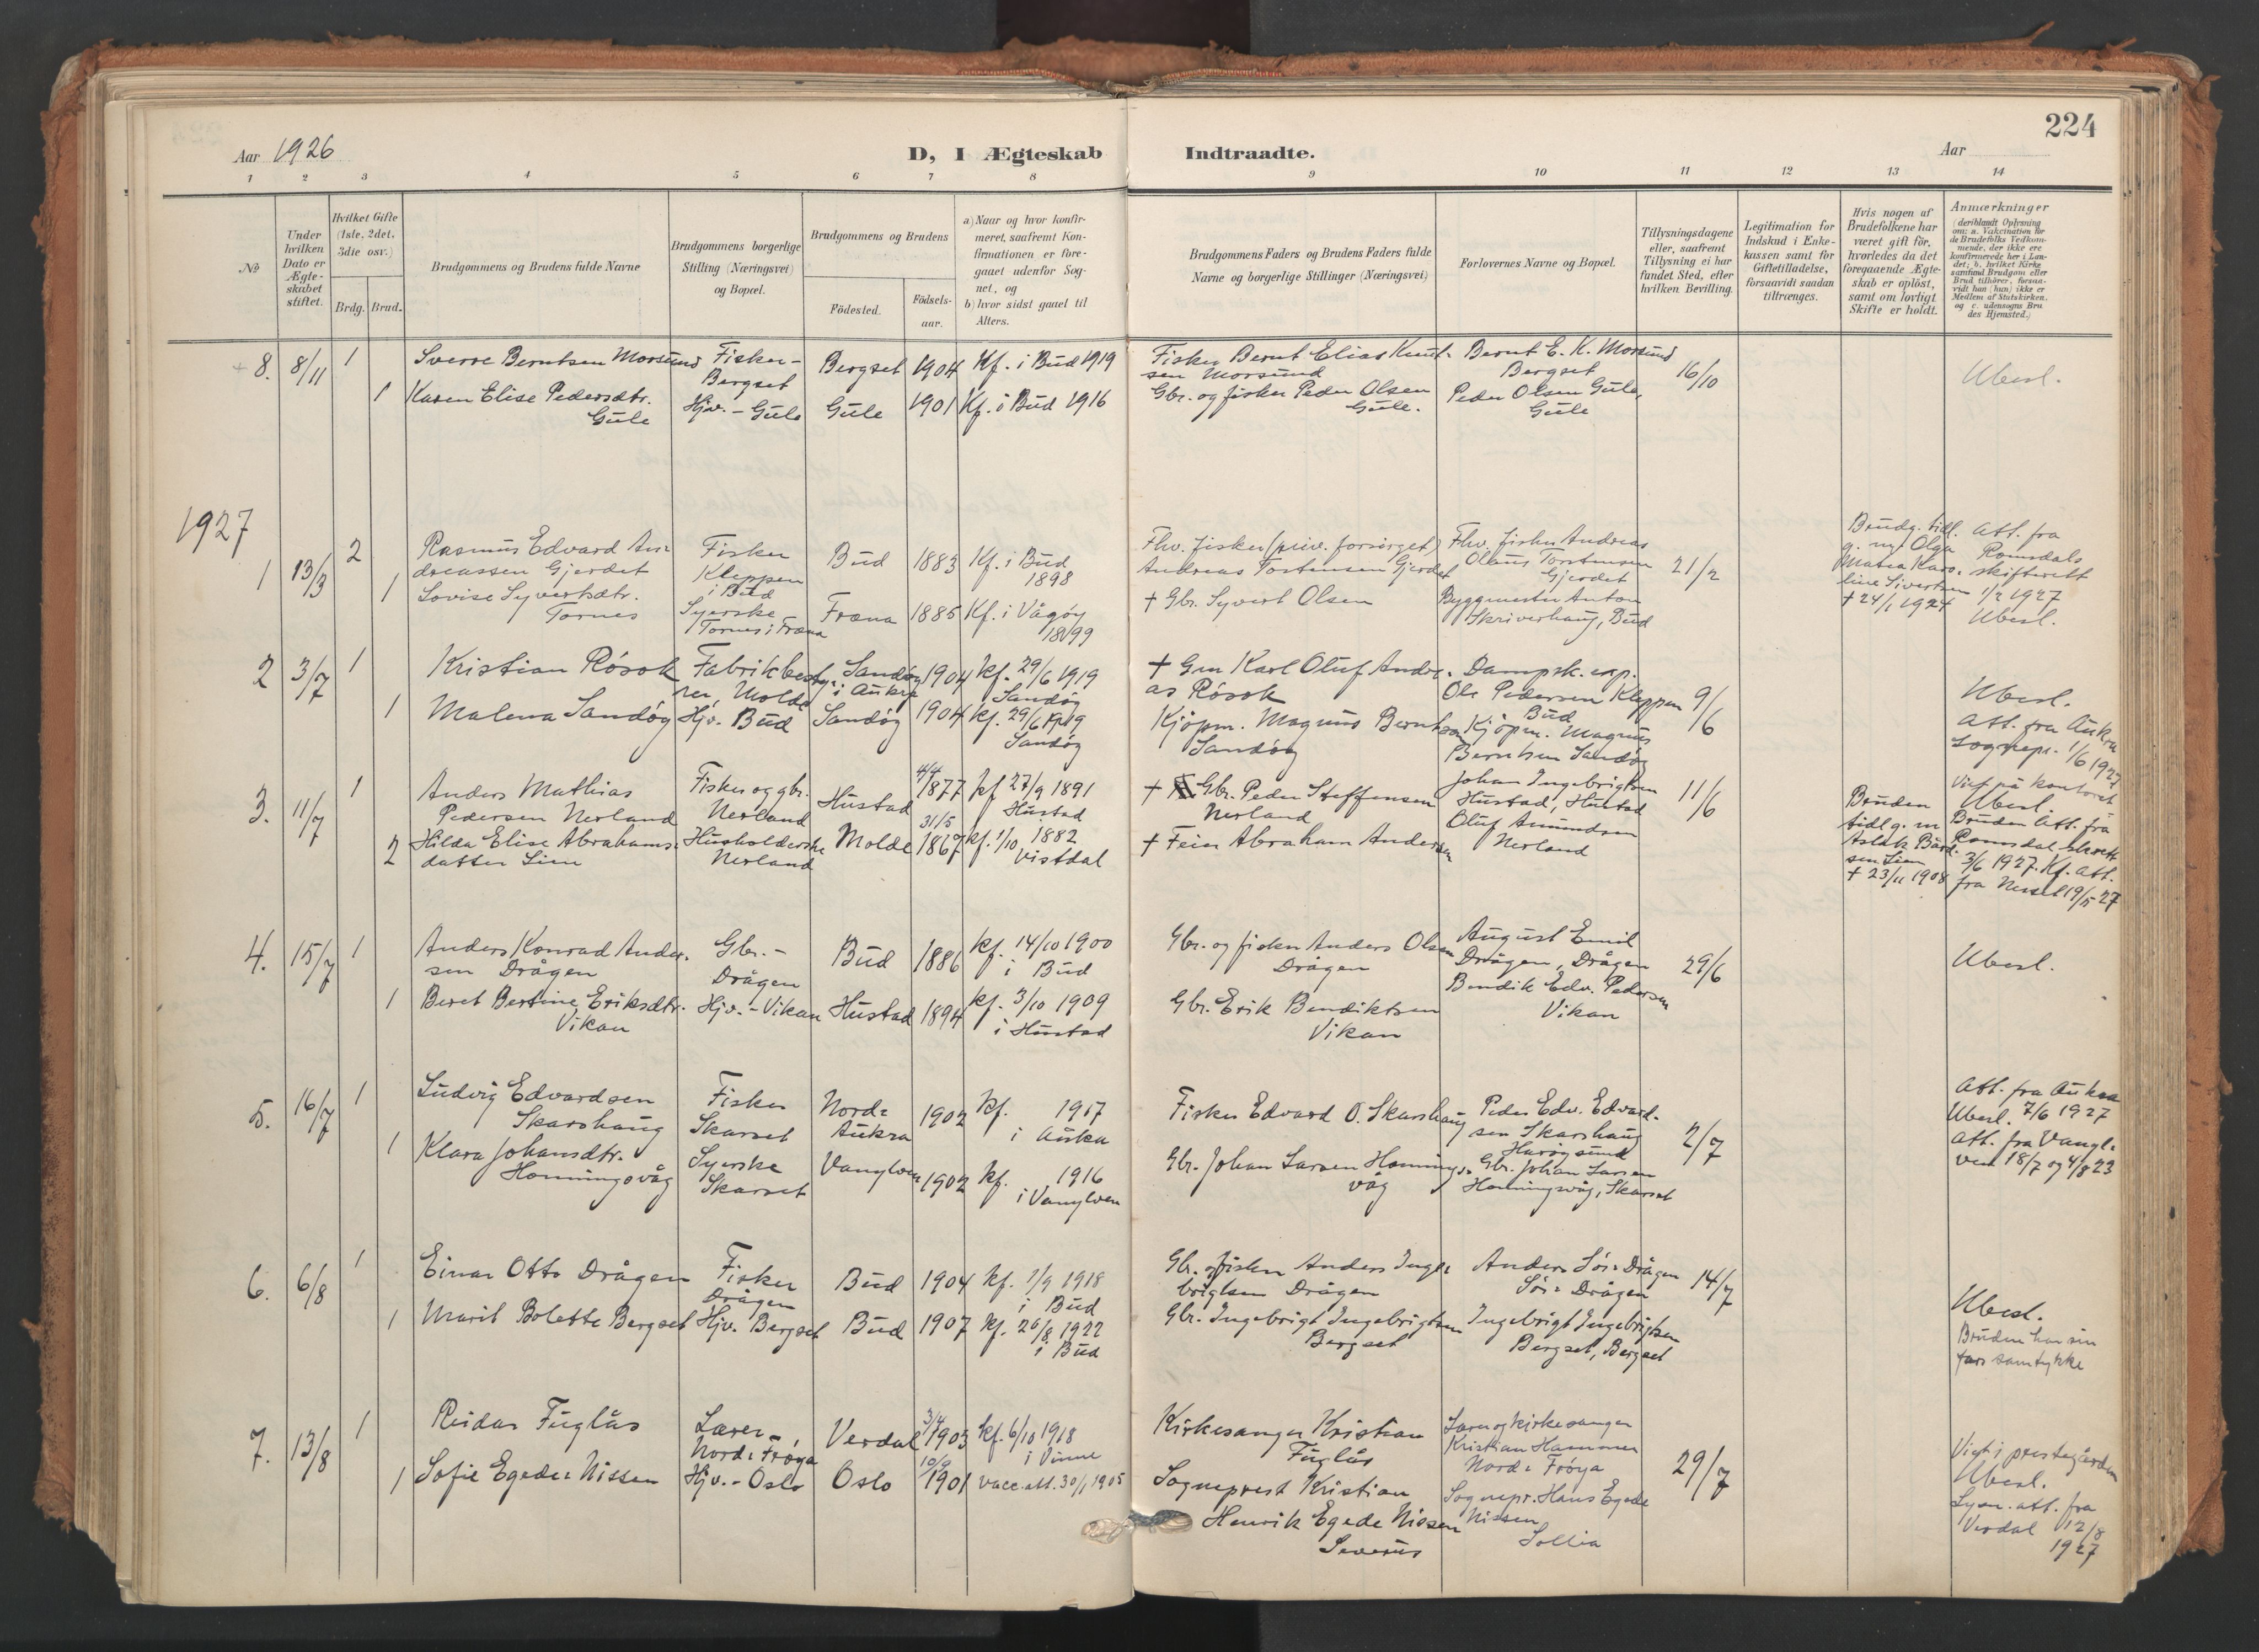 224
Aar 1926
D, I Ægteskab Indtraadte.
Aar
1 2 3 4 5 6 7 8 9 10 11 12 13 14
№
Under hvilken Dato er Ægte-skabet stiftet.
Hvilket Gifte (1ste, 2det, 3die osv.)
Brdg. Brud.
Brudgommens og Brudens fulde Navne
Brudgommens borgerlige Stilling (Næringsvei) og Bopæl.
Brudgommens og Brudens
Fødested.
Fødsels-aar.
a) Naar og hvor konfir-meret, saafremt Kon-firmationen er fore-gaaet udenfor Sog-net, og
b) hvor sidst gaaet til Alters.
Brudgommens Faders og Brudens Faders fulde Navne og borgerlige Stillinger (Næringsvei)
Forlovernes Navne og Bopæl.
Tillysningsdagene eller, saafremt Tillysning ei har fundet Sted, efter hvilken Bevilling.
Legitimation for Indskud i Enke-kassen samt for Giftetilladelse, forsaavidt saadan tiltrænges.
Hvis nogen af Brudefolkene har været gift før, hvorledes da det foregaaende Ægte-skab er opløst, samt om lovligt Skifte er holdt.
Anmærkninger
(deriblandt Oplysning om: a. Vakcination for de Brudefolks Vedkom-mende, der ikke ere konfirmerede her i Lan-det; b. hvilket Kirke samfund Brudgom eller Brud tilhører, forsaa-vidt han (hun) ikke er Medlem af Statskirken, og c. udensogns Bru des Hjemsted.)
8. 8/11 1 Sverre Berntsen Morsund Fisker - Bergset Bergset 1904 Kf. i Bud 1919
Fisker Bernt Elias Knut-
sen Morsund
Bernt E. K. Morsund
Bergset
16/10
Ubesl.
1 Karen Elise Pedersdtr.
Gule
Hjv. - Gule Gule 1901 Kf. i Bud 1916
Gbr. og fisker Peder Olsen
Gule.
Peder Olsen Gule,
Gule
1927
1 13/3 2 Rasmus Edvard An=
dreassen Gjerdet
Fisker
Kleppen
i Bud
Bud 1883 Kf. i Bud
1898
Fhv. fisker (priv. forsørget)
Andreas Torstensen Gjerdet
Fhv. fisker Andreas
Olaus Torstensen
Gjerdet
21/2
Brudg. tidl.
g. m. Olga
Matea Karo-
line Sivertsen
+ 24/1 1924
Att. fra
Romsdals
skifterett
1/2 1927
Ubesl.
1 Lovise Syvertsdtr.
Tornes
Syerske
Tornes i Fræna
Fræna 1885 Kf. i Vågøy
1899
+ Gbr. Syvert Olsen
Byggmester Anton
Skriverhaug, Bud
2 3/7 1 Kristian Rósok Fabrikbesty-
rer, Molde
Sandøy
i Aukra
1904 kf. 29/6 1919
Sandøy
+ Gm Karl Oluf Andre-
as Rósok
Dampsk. exp.
Ole Pedersen Kleppen
Bud
9/6
Ubesl.
Att. fra Aukra
sognepr. 1/6 1927
1 Malena Sandøy Hjv. Bud Sandøy 1904 kf. 29/6 1919
Sandøy
Kjöpm. Magnus Berntsen
Sandøy
Kjöpm. Magnus
Berntsen Sandøy
3. 11/7 1 Anders Mathias
Pedersen Nerland
Fisker og gbr.
Nerland
Hustad 4/4 1877 kf 27/9 1891
Hustad
+ Gbr. Peder Steffensen
Nerland
Johan Ingebrigtsen
Hustad, Hustad
11/6
Bruden
tidl g. m
Aslak Bård-
sen Lien
+ 23/11 1908
Viet på kontoret
Ubesl.
Bruden Att. fra
Romsdal skrett
3/6 1927. Kf. att.
fra Nesset 19/5 27
2 Hilda Elise Abrahams-
datter Lien
Husholderske
Nerland
Molde 31/5 1867 kf. 1/10 1882
Vistdal
+ Feier Abraham Andersen
Oluf Amundsen
Nerland
4. 15/7 1 Anders Konrad Ander-
sen Drågen
Gbr. -
Drågen
Bud 1886 kf. 14/10 1900
i Bud
Gbr. og fisker Anders Olsen
Drågen
August Emil
Drågen, Drågen
29/6
Ubesl.
1 Beret Bertine Eriksdtr.
Vikan
Hjv. - Vikan Hustad 1894 kf. 3/10 1909
i Hustad
Gbr. Erik Bendiktsen
Vikan
Bendik Edv. Pedersen
Vikan
5. 16/7 1 Ludvig Edvardsen
Skarshaug
Fisker
Skarset
Nord=
Aukra
1902 kf. 1917
i Aukra
Fisker Edvard O. Skarshaug
Peder Edv. Edvard-
sen Skarshaug
Harøysund
2/7
Att. fra Aukra
Ubesl. 7/6 1927
Att. fra Vanyl-
ven 18/7 og 4/8 23
1 Klara Johansdtr.
Honningsvåg
Syerske
Skarset
Vanylven 1902 kf. 1916
i Vanylven
Gbr. Johan Larsen Honnings-
våg
Gbr. Johan Larsen
Honningsvåg, Skarset
6. 6/8 1 Einar Otto Drågen Fisker
Drågen
Bud 1904 kf. 1/9 1918
i Bud
Gbr. og fisker Anders Inge-
brigtsen Drågen
Anders Sör= Drågen
Sör= Drågen
14/7
Ubesl.
Bruden har sin
fars samtykke
1 Marit Bolette Bergset Hjv. Bergset Bud 1907 kf. 26/8 1922
i Bud
Gbr. Ingebrigt Ingebrigtsen
Bergset
Ingebrigt Ingebrigtsen
Bergset, Bergset
7. 13/8 1 Reidar Fuglås Lærer -
Nord= Frøya
Verdal 3/4 1903 kf. 6/10 1918
i Vinne
Kirkesanger Kristian
Fuglås
Lærer og kirkesanger
Kristian Hammer
Nord= Frøya
29/7
Viet i prestegården
Ubesl.
Lysn. att. fra
Verdal 12/8
1927
1 Sofie Egede= Nissen Hjv. - Oslo Oslo 1901 vacc. att. 30/1 1905
Sogneprest Kristian
Henrik Egede Nissen
Severus
Sognepr. Hans Egede
Nissen
Sollia